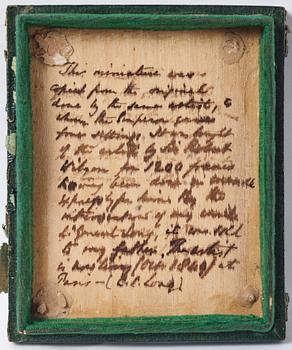 This miniature was
copied from the original
done by the same artist, to
whom the Emperor gave
four settings. It was bought
of the artist by Sir Robert
Wilson for 1200 francs
having been done
for him By the
of my uncle
General Long, it was sold
to my father. The artist
is now living (Oct 1840) at
Paris — (C. E. Long)